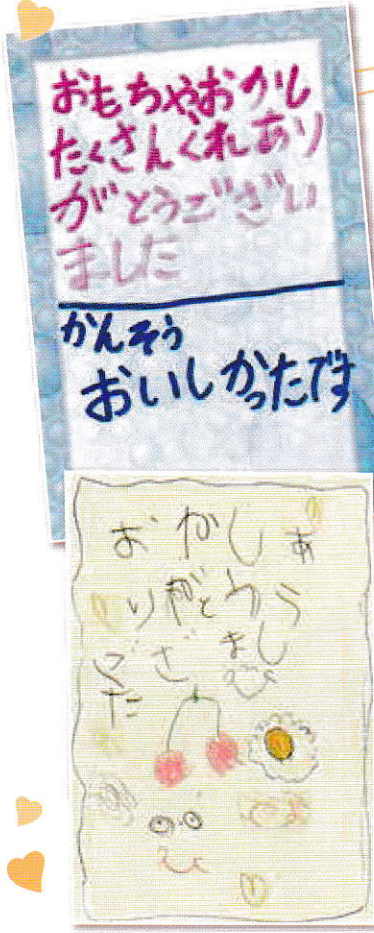 おもちゃおかし
たくさんくれあり
がとうござい
ました
かんそう
おいしかったです
おかしあ
りがとうう
ござまし
た